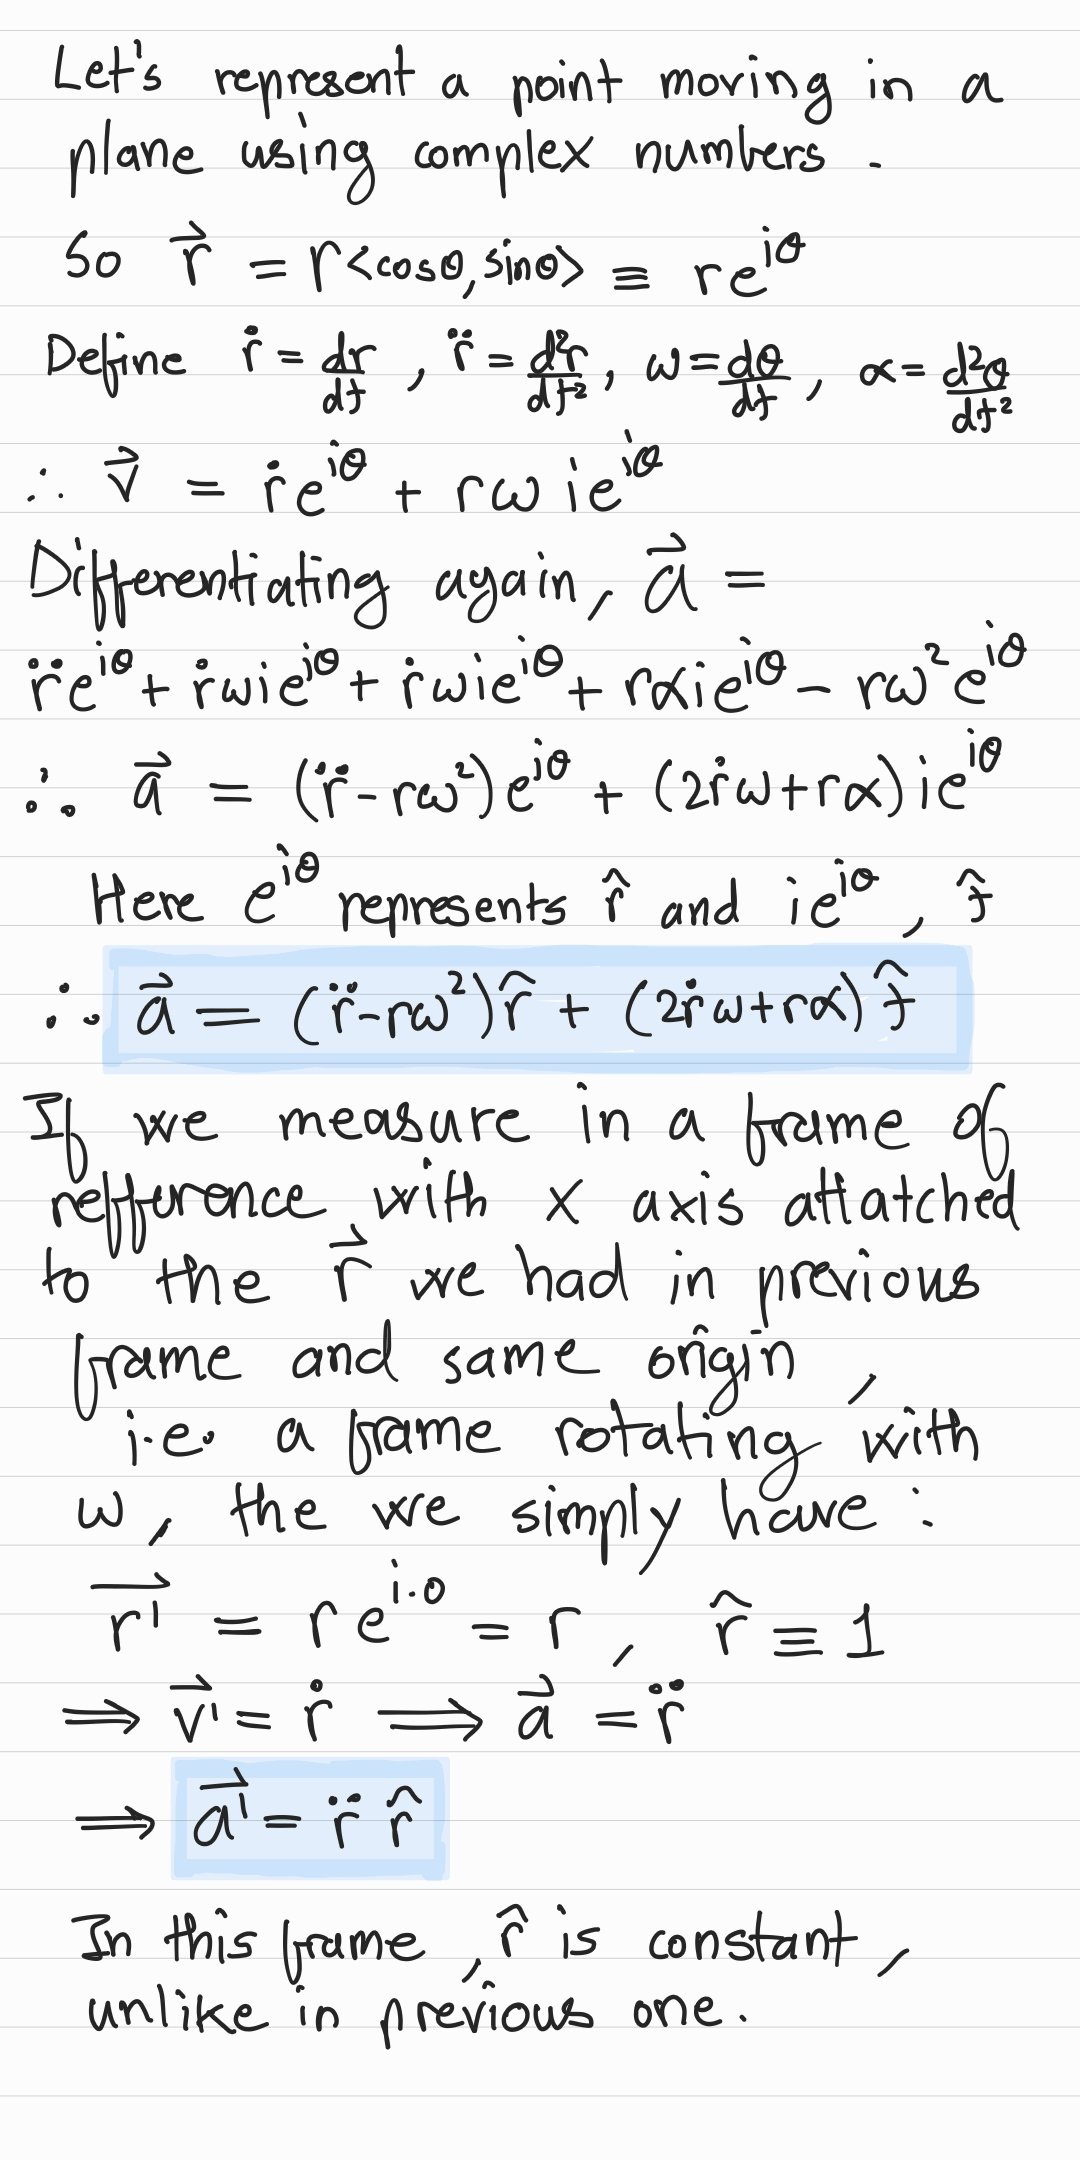 Let's represent a point moving in a
plane using complex numbers.
So r⃗ = r<cosθ, sinθ> ≡ re^{iθ}
Define ṙ = dr/dt, r̈ = d²r/dt², ω = dθ/dt, α = d²θ/dt²
∴ v⃗ = ṙe^{iθ} + rωie^{iθ}
Differentiating again, a⃗ =
r̈e^{iθ} + ṙωie^{iθ} + ṙωie^{iθ} + rαie^{iθ} − rω²e^{iθ}
∴ a⃗ = (r̈-rω²)e^{iθ} + (2ṙω+rα)ie^{iθ}
Here e^{iθ} represents r̂ and ie^{iθ}, t̂
∴ a⃗ = (r̈-rω²)r̂ + (2ṙω+rα)t̂
If we measure in a frame of
refference with x axis attatched
to the r⃗ we had in previous
frame and same origin,
i.e. a frame rotating with
ω, the we simply have:
r⃗' = re^{i·0} = r, r̂ ≡ 1
⟹ v⃗' = ṙ ⟹ a⃗ = r̈
⟹ a⃗' = r̈ r̂
In this frame, r̂ is constant,
unlike in previous one.